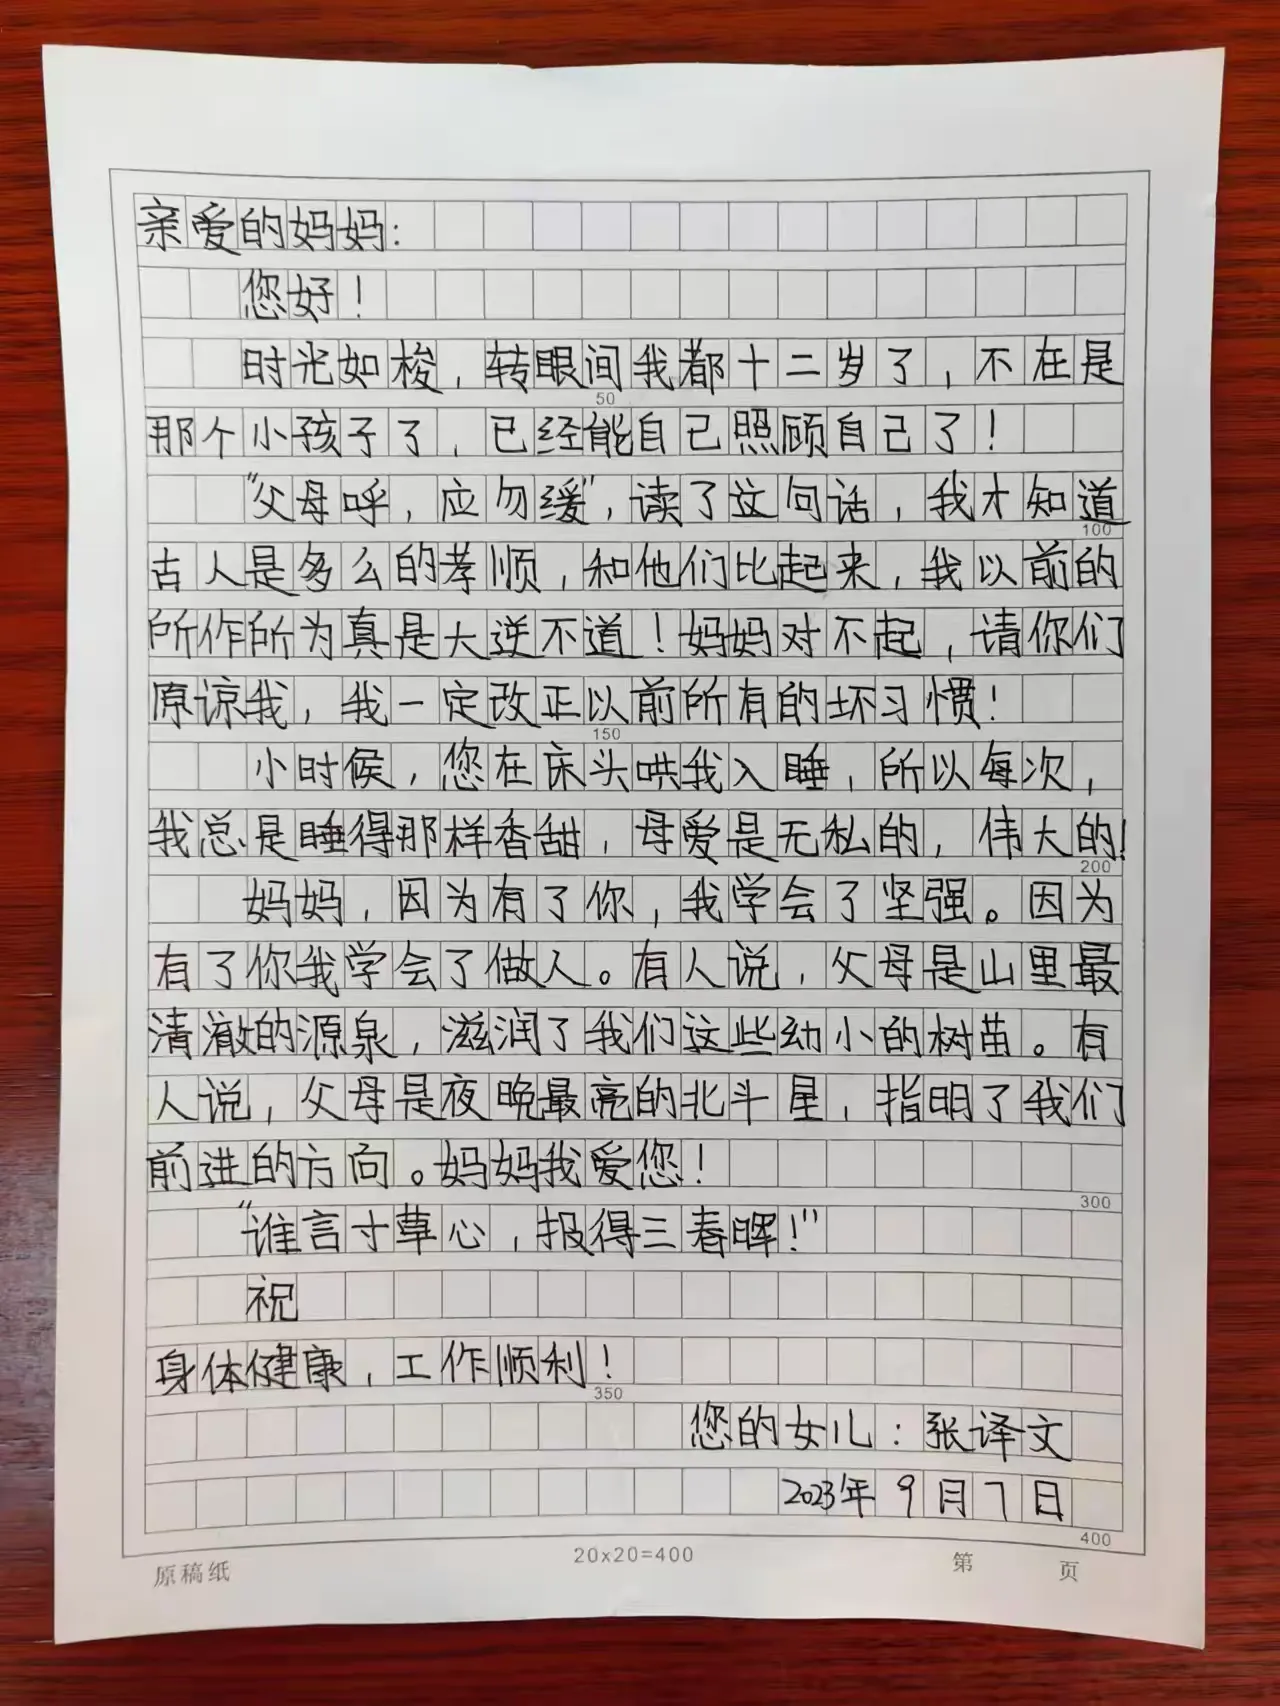 亲爱的妈妈：
您好！
时光如梭，转眼间我都十二岁了，不在是
50
那个小孩子了，已经能自己照顾自己了！
"父母呼，应勿缓"，读了这句话，我才知道
100
古人是多么的孝顺，和他们比起来，我以前的
所作所为真是大逆不道！妈妈对不起，请你们
原谅我，我一定改正以前所有的坏习惯！
150
小时候，您在床头哄我入睡，所以每次，
我总是睡得那样香甜，母爱是无私的，伟大的！
200
妈妈，因为有了你，我学会了坚强。因为
有了你我学会了做人。有人说，父母是山里最
清澈的源泉，滋润了我们这些幼小的树苗。有
人说，父母是夜晚最亮的北斗星，指明了我们
前进的方向。妈妈我爱您！
300
"谁言寸草心，报得三春晖！"
祝
身体健康，工作顺利！
350
您的女儿：张译文
2023年9月7日
400
原稿纸 20x20=400 第 页